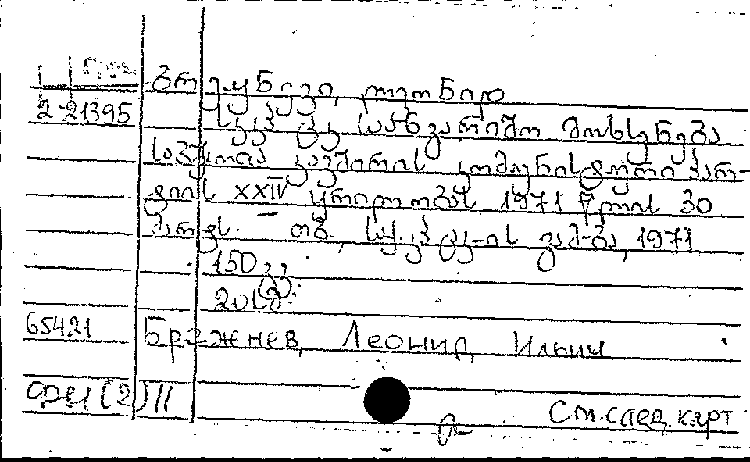 ბრეჟნევი, ლეონიდ
2-21395
სკკპ ცკ საანგარიშო მოხსენება
საბჭოთა კავშირის კომუნისტური პარ-
ტიის XXIV ყრილობას 1971 წლის 30
მარტს. თბ., საქ. კპ ცკ-ის გამ-ბა, 1971
150 გვ.
65421 Брежнев, Леонид Ильич
(2) II
См. след. карт